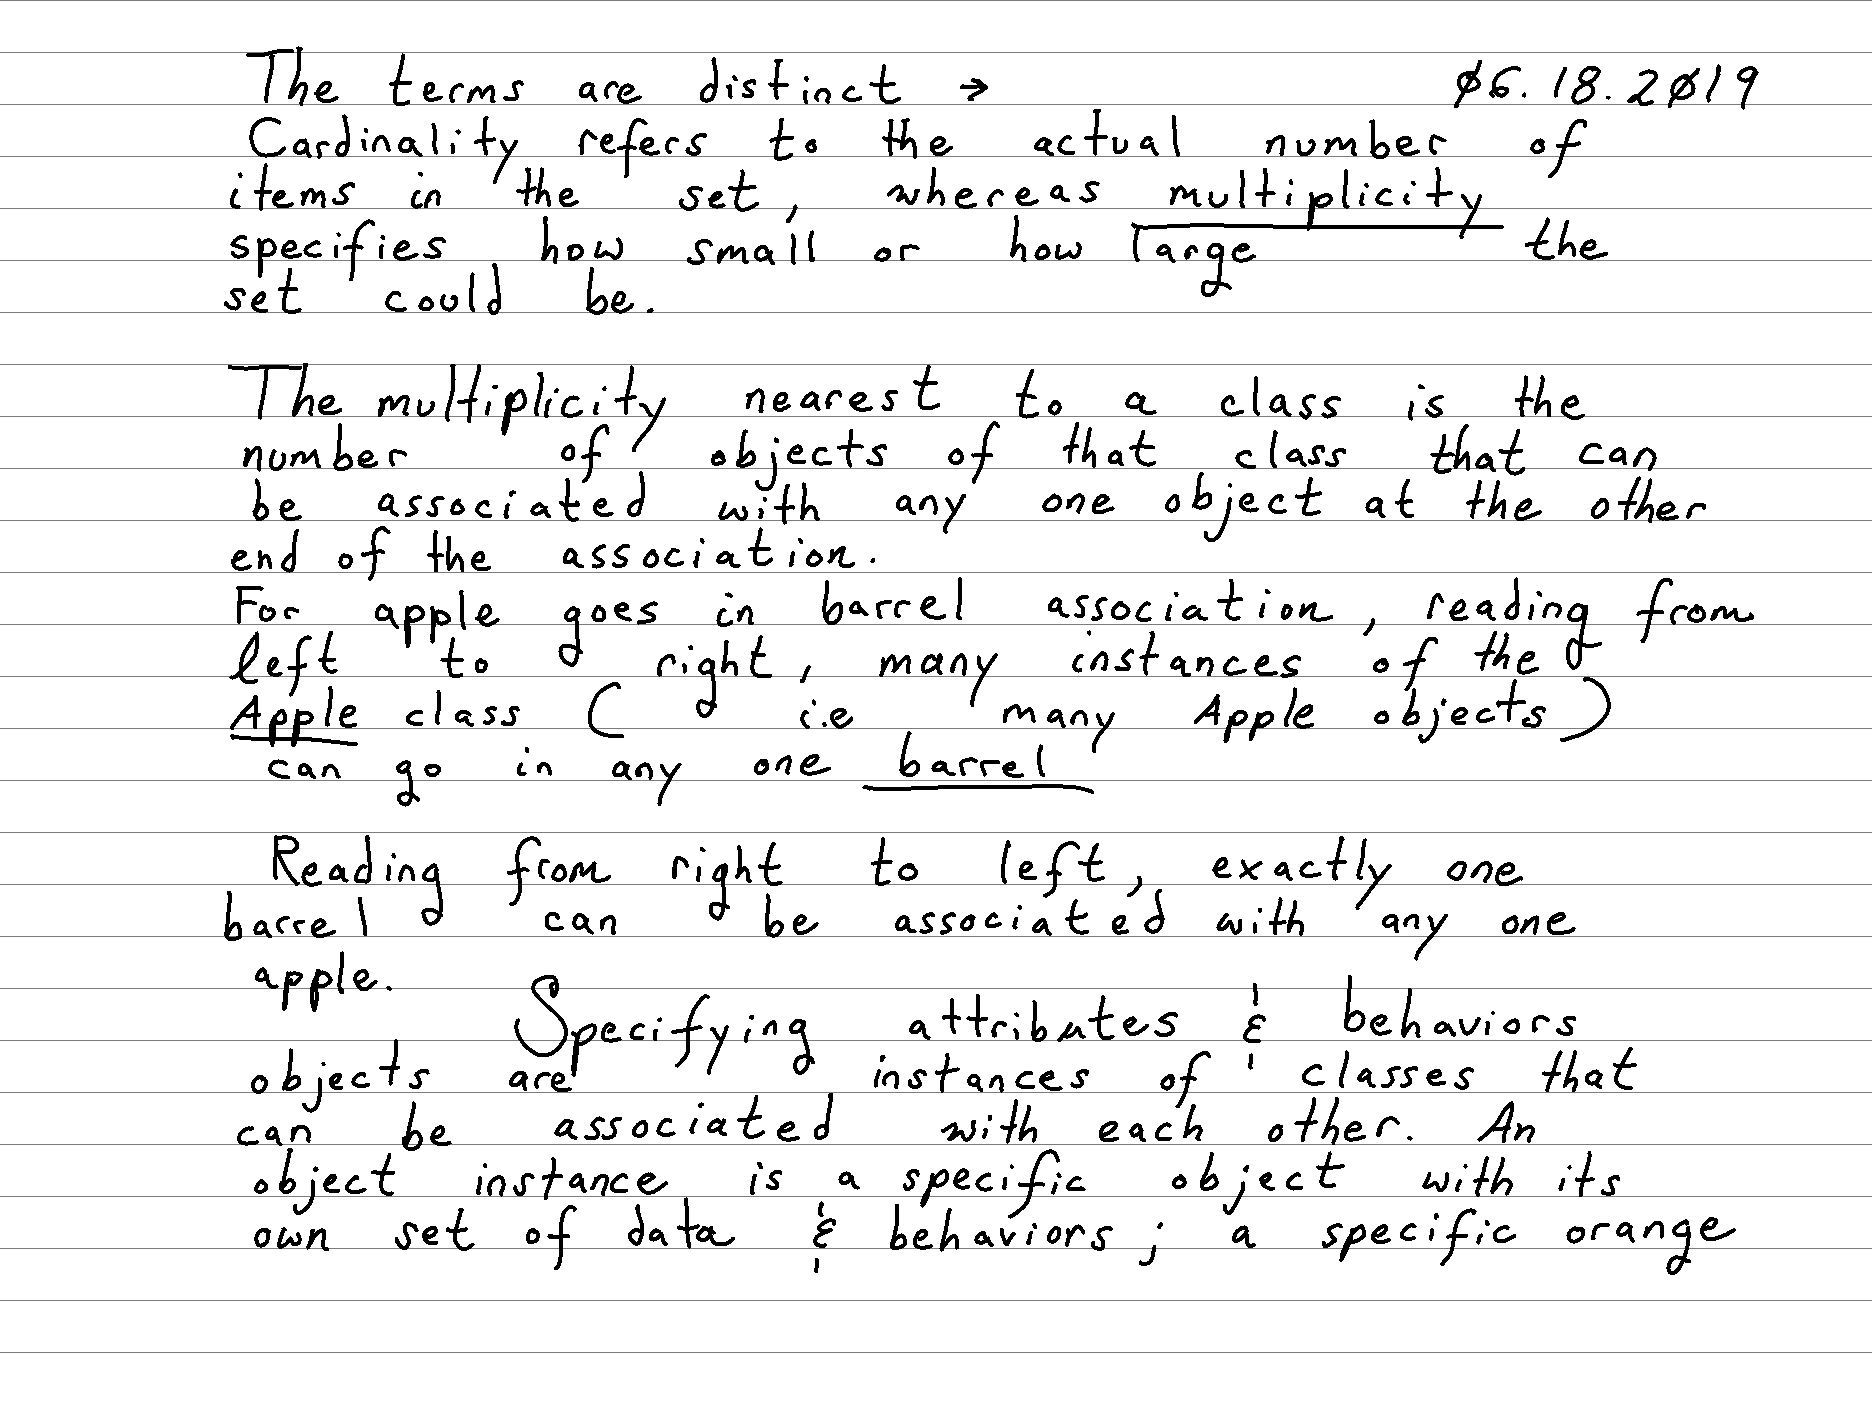 The terms are distinct → Ø6.18.2Ø19
Cardinality refers to the actual number of
items in the set, whereas multiplicity
specifies how small or how large the
set could be.
The multiplicity nearest to a class is the
number of objects of that class that can
be associated with any one object at the other
end of the association.
For apple goes in barrel association, reading from
left to right, many instances of the
Apple class ( i.e many Apple objects)
can go in any one barrel
Reading from right to left, exactly one
barrel can be associated with any one
apple.
Specifying attributes & behaviors
objects are instances of classes that
can be associated with each other. An
object instance is a specific object with its
own set of data & behaviors; a specific orange